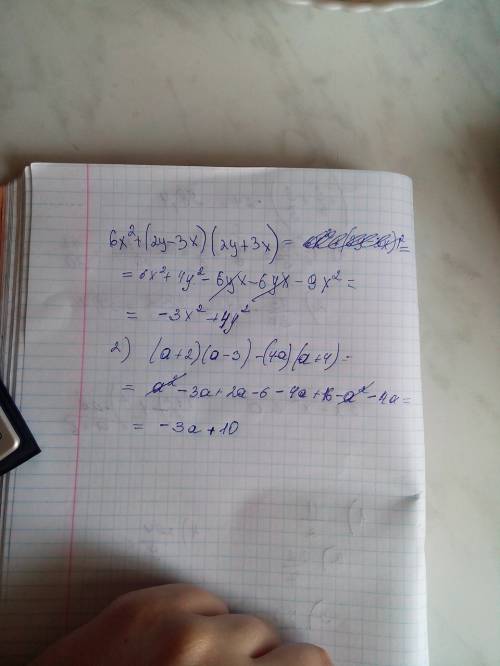 6x²+(2y-3x)(2y+3x)= =
=6x²+4y²-6yx-6yx-9x²=
= -3x²+4y²
2) (a+2)(a-3)-(4a)(a+4)=
= a²-3a+2a-6-4a+16-a²-4a=
= -3a+10